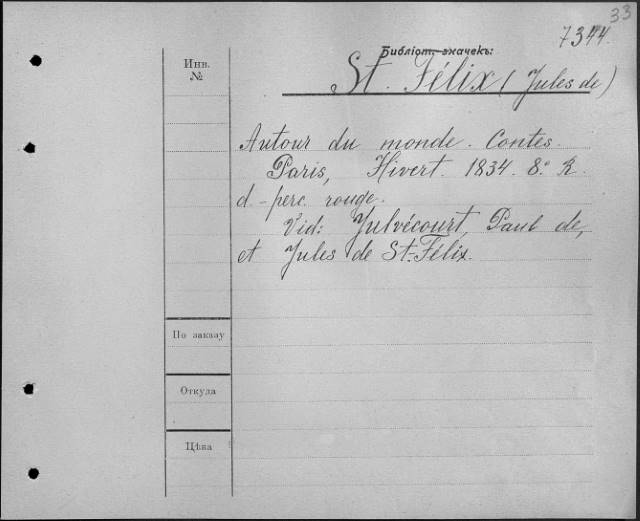 33
7344.
Библіот. значекъ:
St. Félix (Jules de)
Инв.
№
Autour du monde. Contes.
Paris, Hivert. 1834. 8.º R.
d.-perc. rouge.
Vid: Julvécourt, Paul de,
et Jules de St.-Félix.
По заказу
Откуда
Цѣна